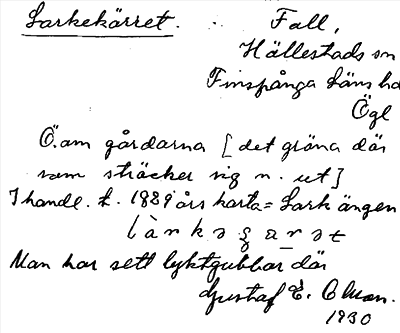 Larkekärret. Fall,
Hällestads sn
Finspånga läns hd
Ögl
Ö. om gårdarna [det gröna där
som sträcker sig n. ut]
I handl. t. 1889 års karta = Lark ängen
Man har sett lyktgubbar där
Gustaf E. Olsson.
1930